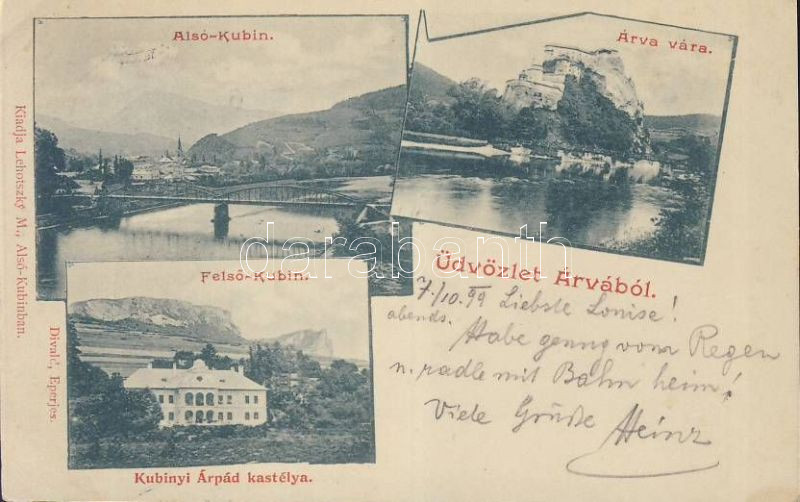 Alsó-Kubin.
Árva vára.
Kiadja Lehotszky M., Alsó-Kubinban.
darabanth
Üdvözlet Árvából.
Felső-Kubin.
Divald, Eperjes.
Kubinyi Árpád kastélya.
7./10.99 Liebste Louise!
abends.
Habe genug vom Regen
u. radle mit Bahn heim!
Viele Grüße
Heinz